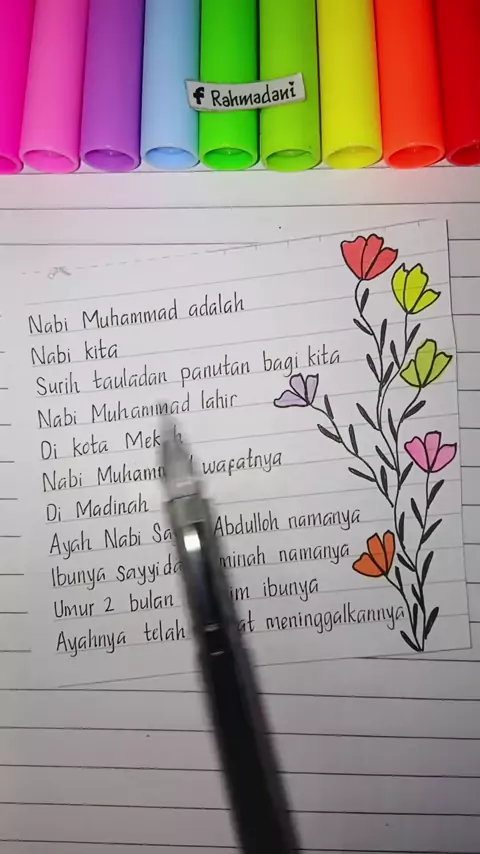 f Rahmadani
Nabi Muhammad adalah
Nabi kita
Surih tauladan panutan bagi kita
Nabi Muhammad lahir
Di kota Mek h
Nabi Muham wafatnya
Di Madinah
Ayah Nabi Abdulloh namanya
Ibunya minah namanya
Umur 2 bulan ibunya
Ayahnya telah meninggalkannya